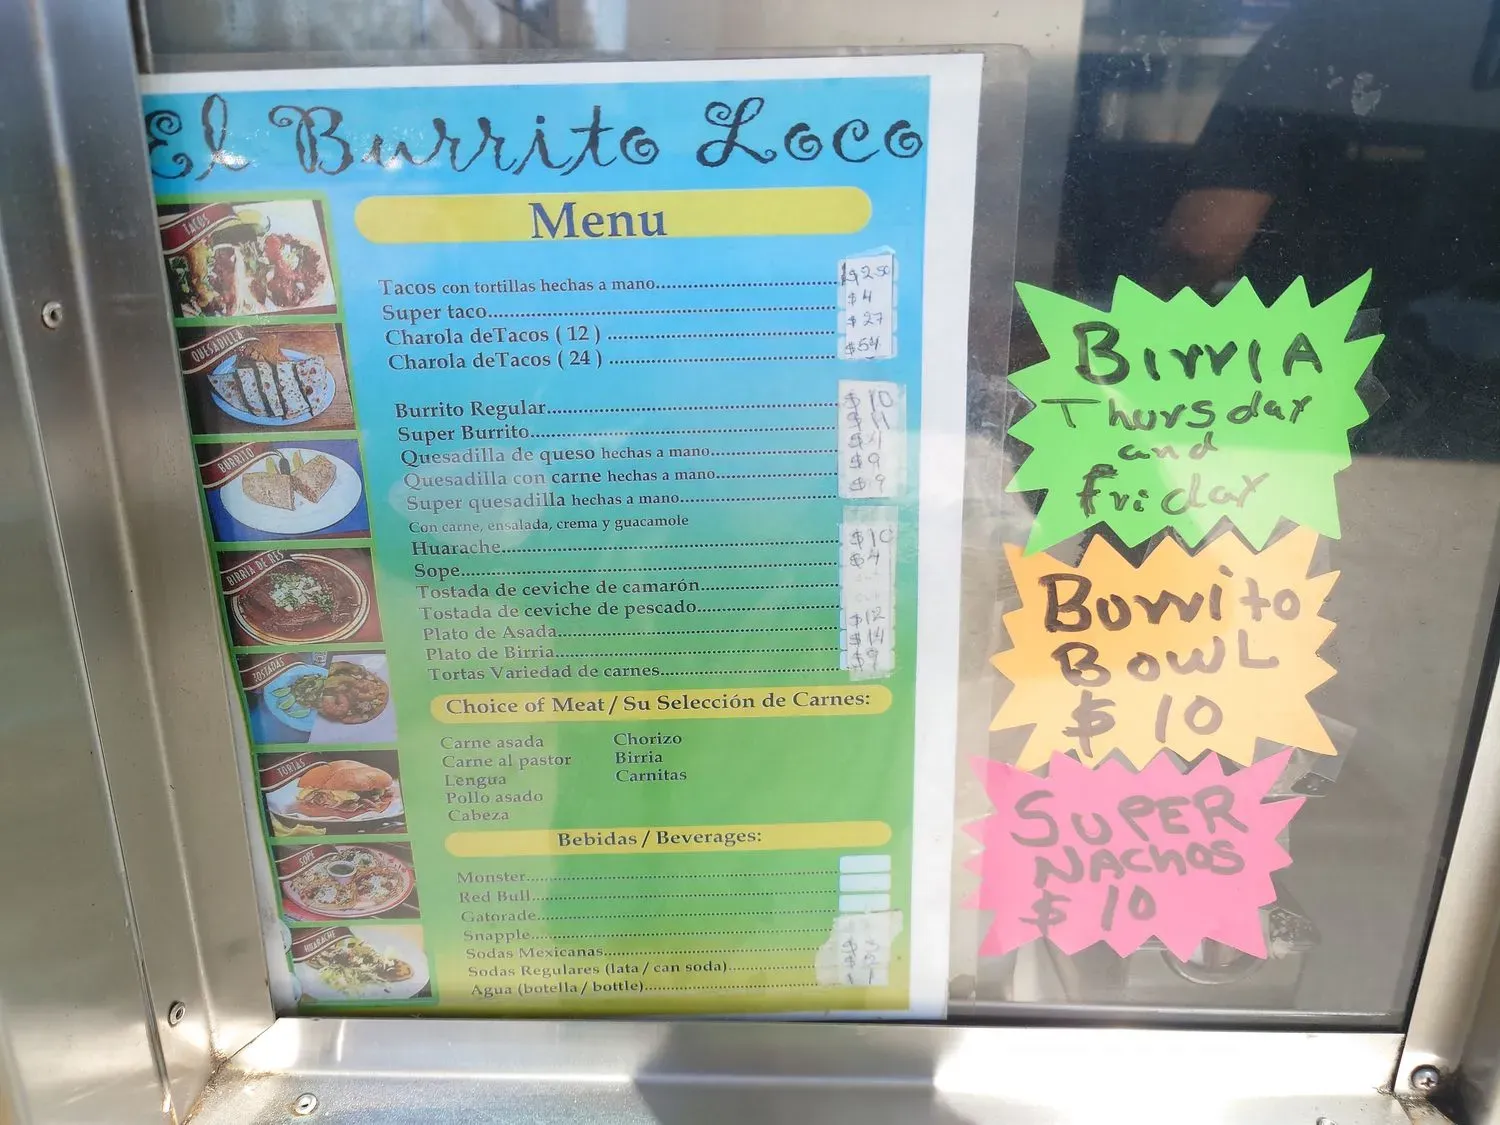 El Burrito Loco
Menu
TACOS
QUESADILLA
BURRITO
BIRRIA DE RES
TOSTADAS
TORTAS
SOPE
HUARACHE
Tacos con tortillas hechas a mano $2.50
Super taco $4
Charola deTacos ( 12 ) $27
Charola deTacos ( 24 ) $54
Burrito Regular $10
Super Burrito $11
Quesadilla de queso hechas a mano
Quesadilla con carne hechas a mano $9
Super quesadilla hechas a mano $9
Con carne, ensalada, crema y guacamole
Huarache $10
Sope $4
Tostada de ceviche de camarón
Tostada de ceviche de pescado
Plato de Asada $12
Plato de Birria $14
Tortas Variedad de carnes $9
Choice of Meat / Su Selección de Carnes:
Carne asada
Carne al pastor
Lengua
Pollo asado
Cabeza
Chorizo
Birria
Carnitas
Bebidas / Beverages:
Monster
Red Bull
Gatorade
Snapple
Sodas Mexicanas $3
Sodas Regulares (lata / can soda)
Agua (botella / bottle) 1
BIrrIA
Thursday
and
friday
Burrito
BOWL
$ 10
SUPER
NACHOS
$ 10